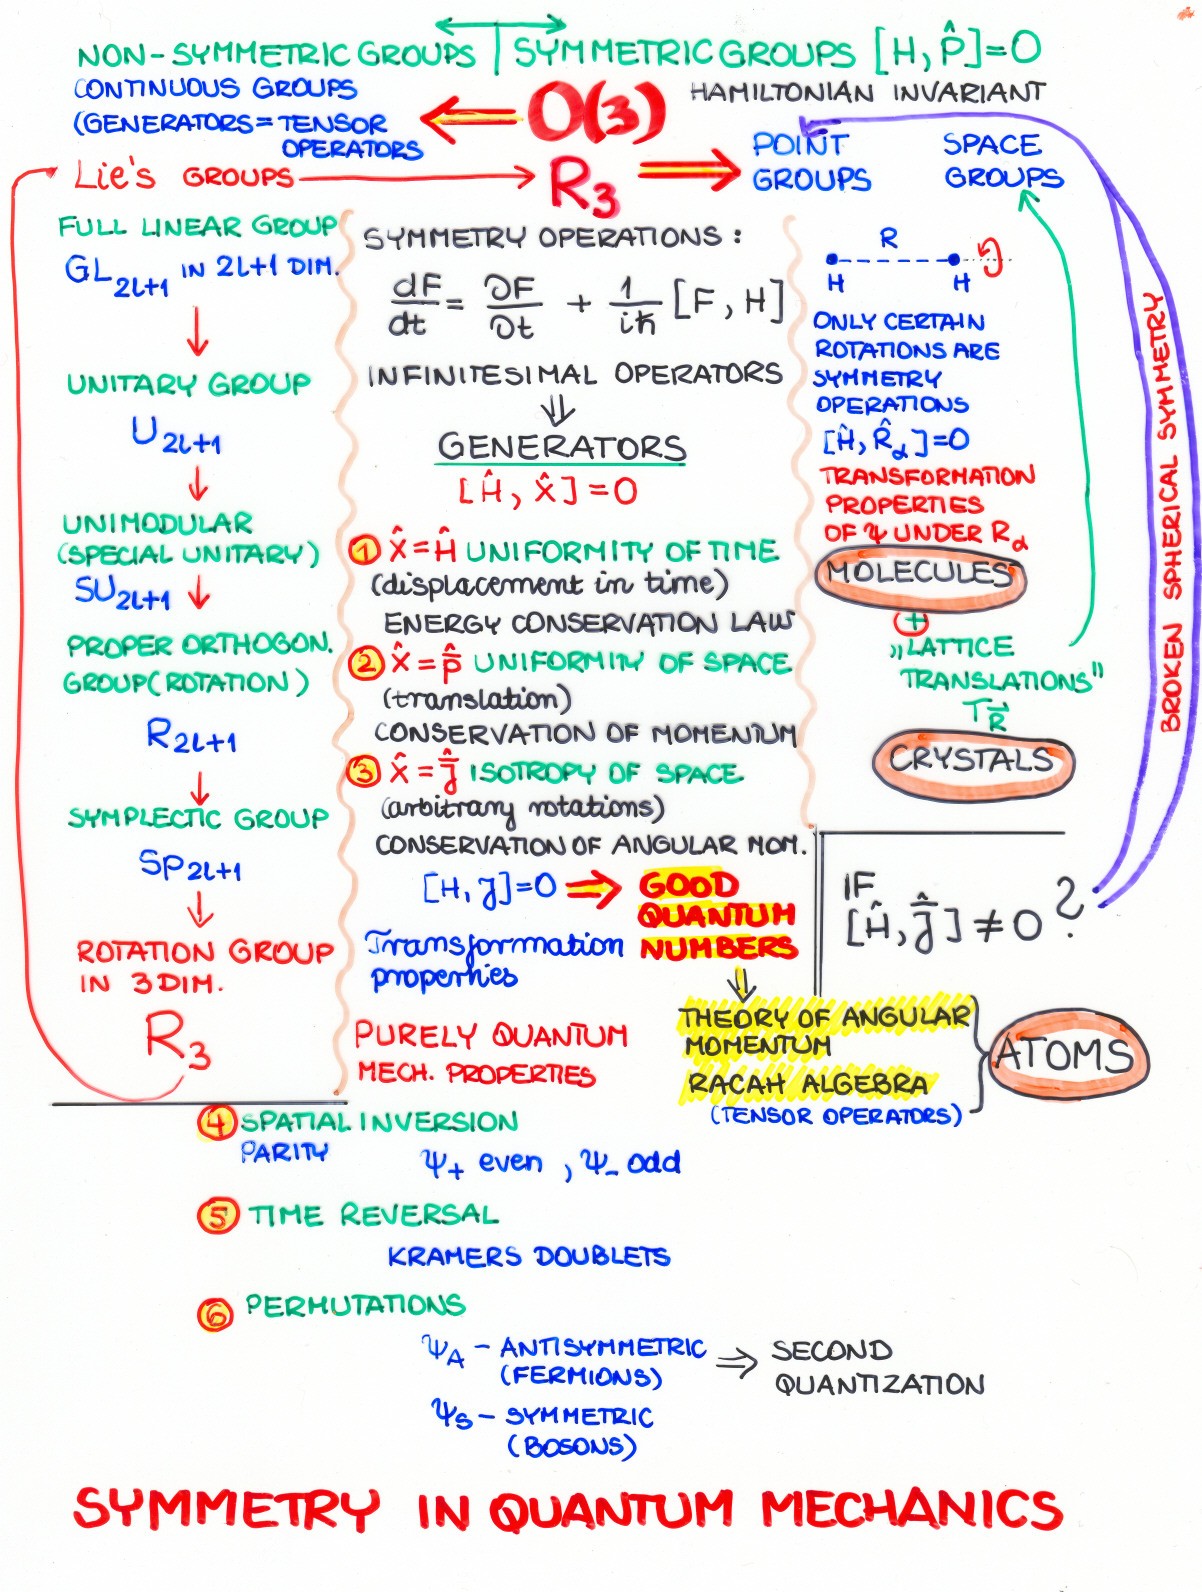 NON-SYMMETRIC GROUPS | SYMMETRIC GROUPS [H, P̂]=0
CONTINUOUS GROUPS
(GENERATORS = TENSOR
OPERATORS
O(3)
HAMILTONIAN INVARIANT
Lie's GROUPS
R₃
POINT
GROUPS
SPACE
GROUPS
FULL LINEAR GROUP
GL₂ₗ₊₁ IN 2l+1 DIM.
UNITARY GROUP
U₂ₗ₊₁
UNIMODULAR
(SPECIAL UNITARY)
SU₂ₗ₊₁
PROPER ORTHOGON.
GROUP(ROTATION)
R₂ₗ₊₁
SYMPLECTIC GROUP
Sp₂ₗ₊₁
ROTATION GROUP
IN 3 DIM.
R₃
SYMMETRY OPERATIONS:
dF/dt = ∂F/∂t + 1/iħ [F, H]
INFINITESIMAL OPERATORS
⇓
GENERATORS
[Ĥ, X̂]=0
① X̂=Ĥ UNIFORMITY OF TIME
(displacement in time)
ENERGY CONSERVATION LAW
② X̂=p̂̄ UNIFORMITY OF SPACE
(translation)
CONSERVATION OF MOMENTUM
③ X̂=Ĵ̄ ISOTROPY OF SPACE
(arbitrary rotations)
CONSERVATION OF ANGULAR MOM.
[H, J]=0 ⇒ GOOD
QUANTUM
NUMBERS
Transformation
properties
PURELY QUANTUM
MECH. PROPERTIES
R
H H
ONLY CERTAIN
ROTATIONS ARE
SYMMETRY
OPERATIONS
[Ĥ, R̂α]=0
TRANSFORMATION
PROPERTIES
OF Ψ UNDER Rα
MOLECULES
+
„LATTICE
TRANSLATIONS"
T_R⃗
CRYSTALS
BROKEN SPHERICAL SYMMETRY
IF
[Ĥ, Ĵ̄] ≠ 0 ?
THEORY OF ANGULAR
MOMENTUM
RACAH ALGEBRA
(TENSOR OPERATORS)
ATOMS
④ SPATIAL INVERSION
PARITY
Ψ₊ even , Ψ₋ odd
⑤ TIME REVERSAL
KRAMERS DOUBLETS
⑥ PERMUTATIONS
Ψ_A – ANTISYMMETRIC
(FERMIONS)
⇒ SECOND
QUANTIZATION
Ψ_S – SYMMETRIC
(BOSONS)
SYMMETRY IN QUANTUM MECHANICS